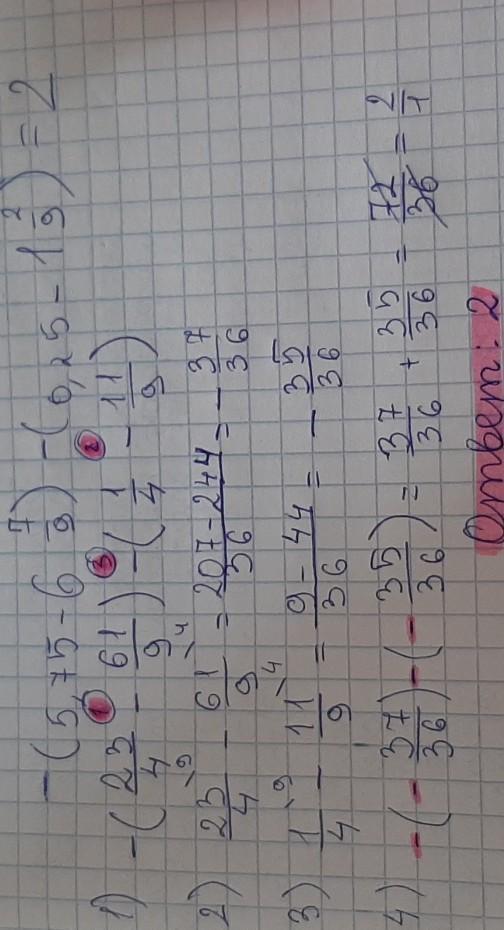 -(5,75-6 7/9)-(0,25-1 2/9)=2
1) -(23/4 - 61/9)-(1/4 - 11/9)
1 3 2
2) 23/4 \9 - 61/9 \4 = 207-244/36 = - 37/36
3) 1/4 \9 - 11/9 \4 = 9-44/36 = - 35/36
4) -(- 37/36)-(- 35/36) = 37/36 + 35/36 = 72/36 = 2/1
Ответ: 2